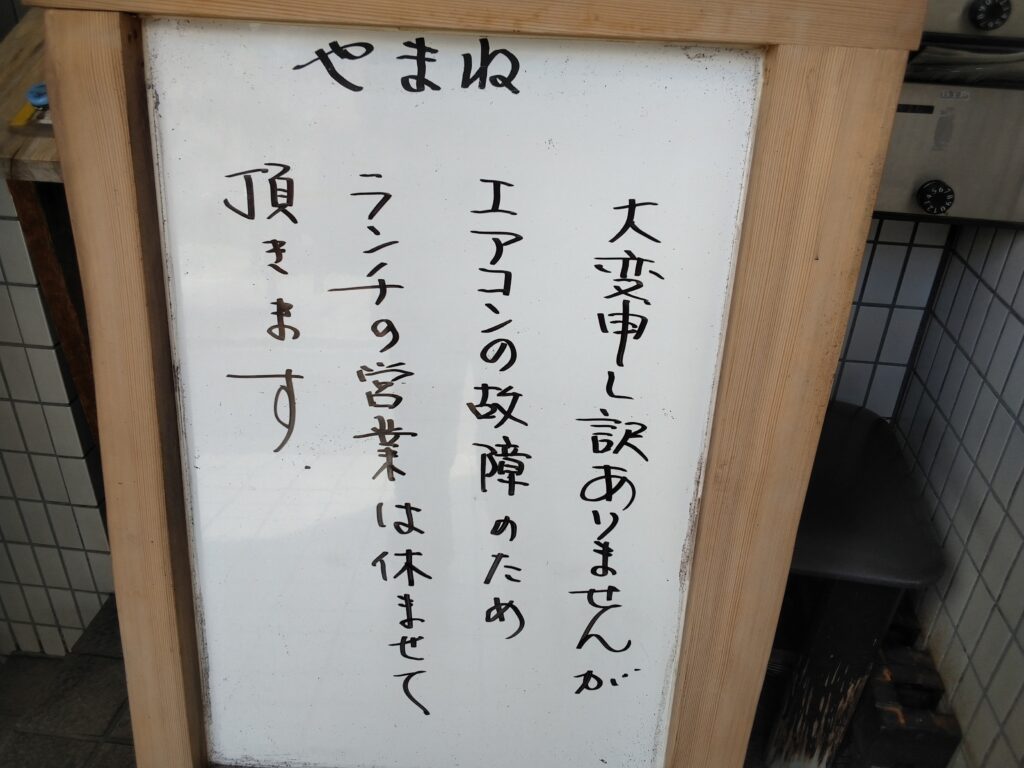 やまね
大変申し訳ありませんが
エアコンの故障のため
ランチの営業は休ませて
頂きます